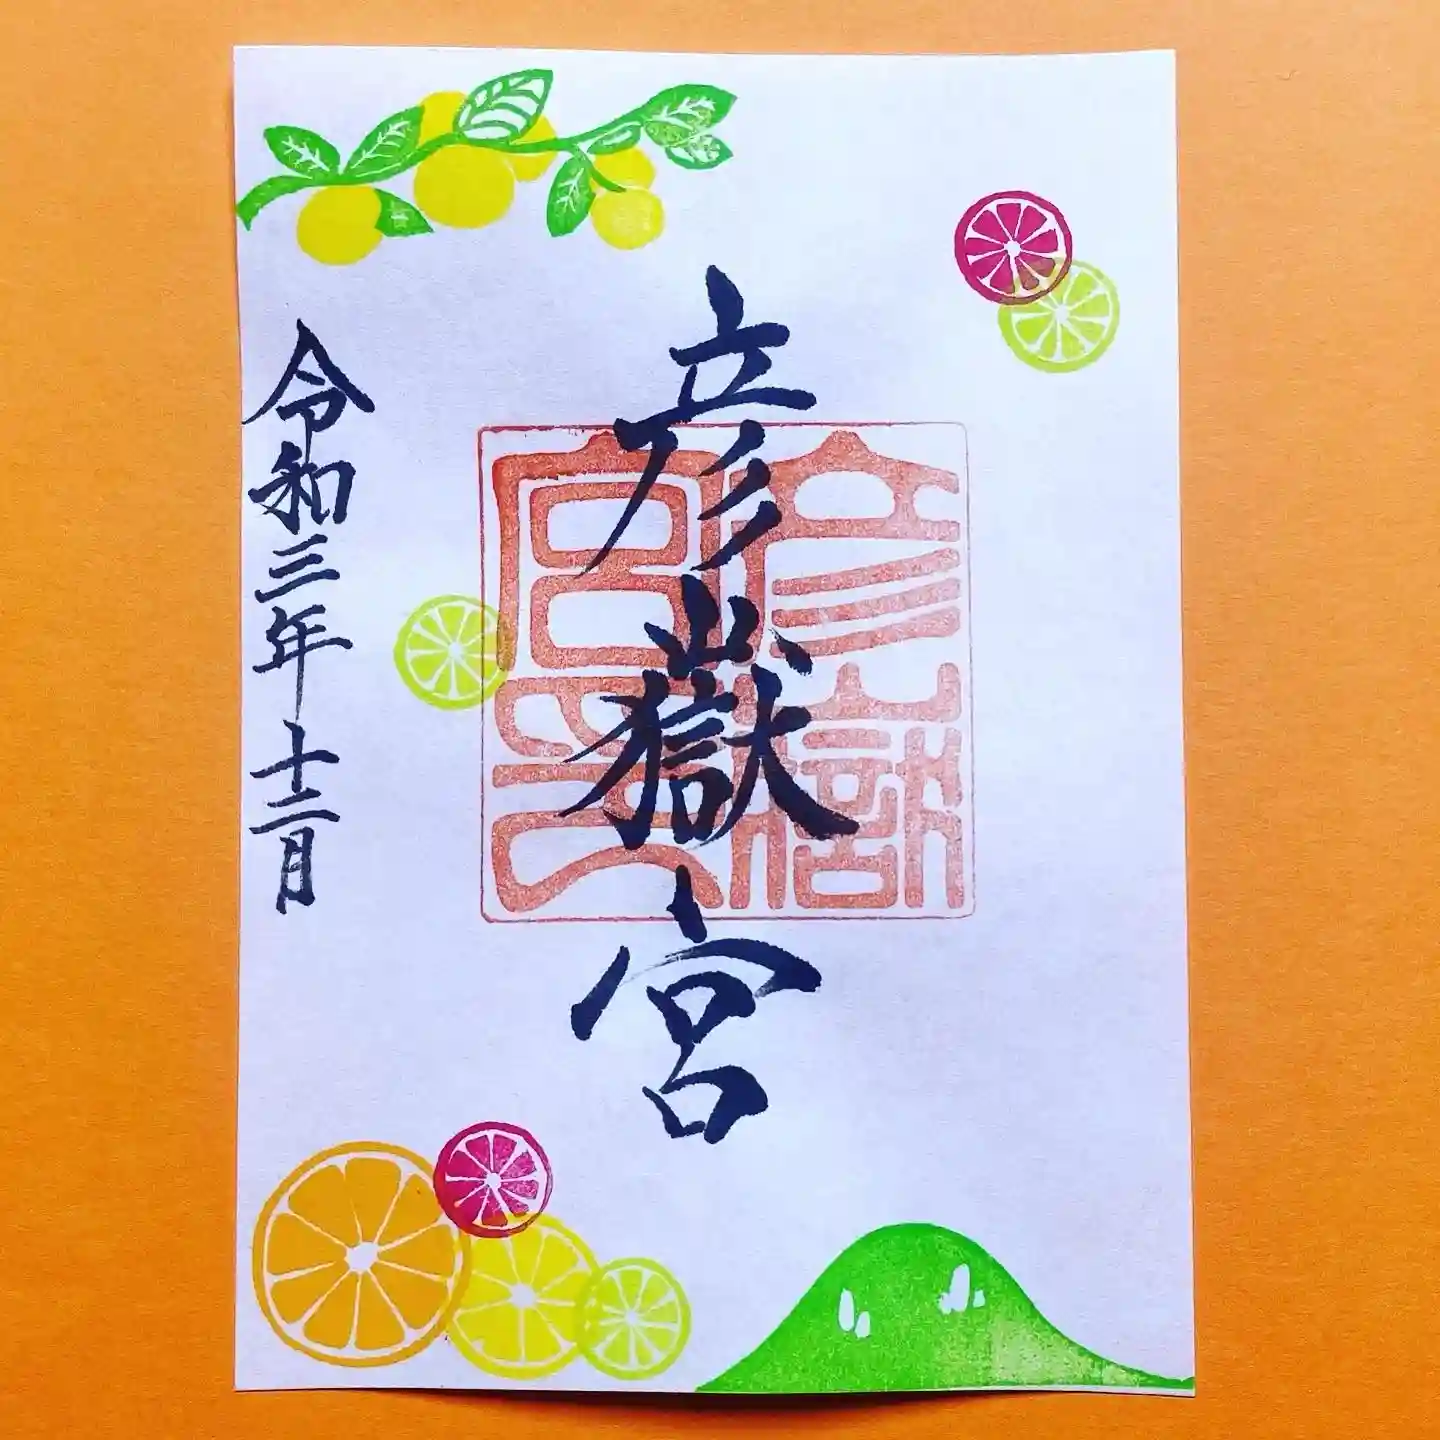 彦嶽宮
令和三年十二月
彦嶽宮印